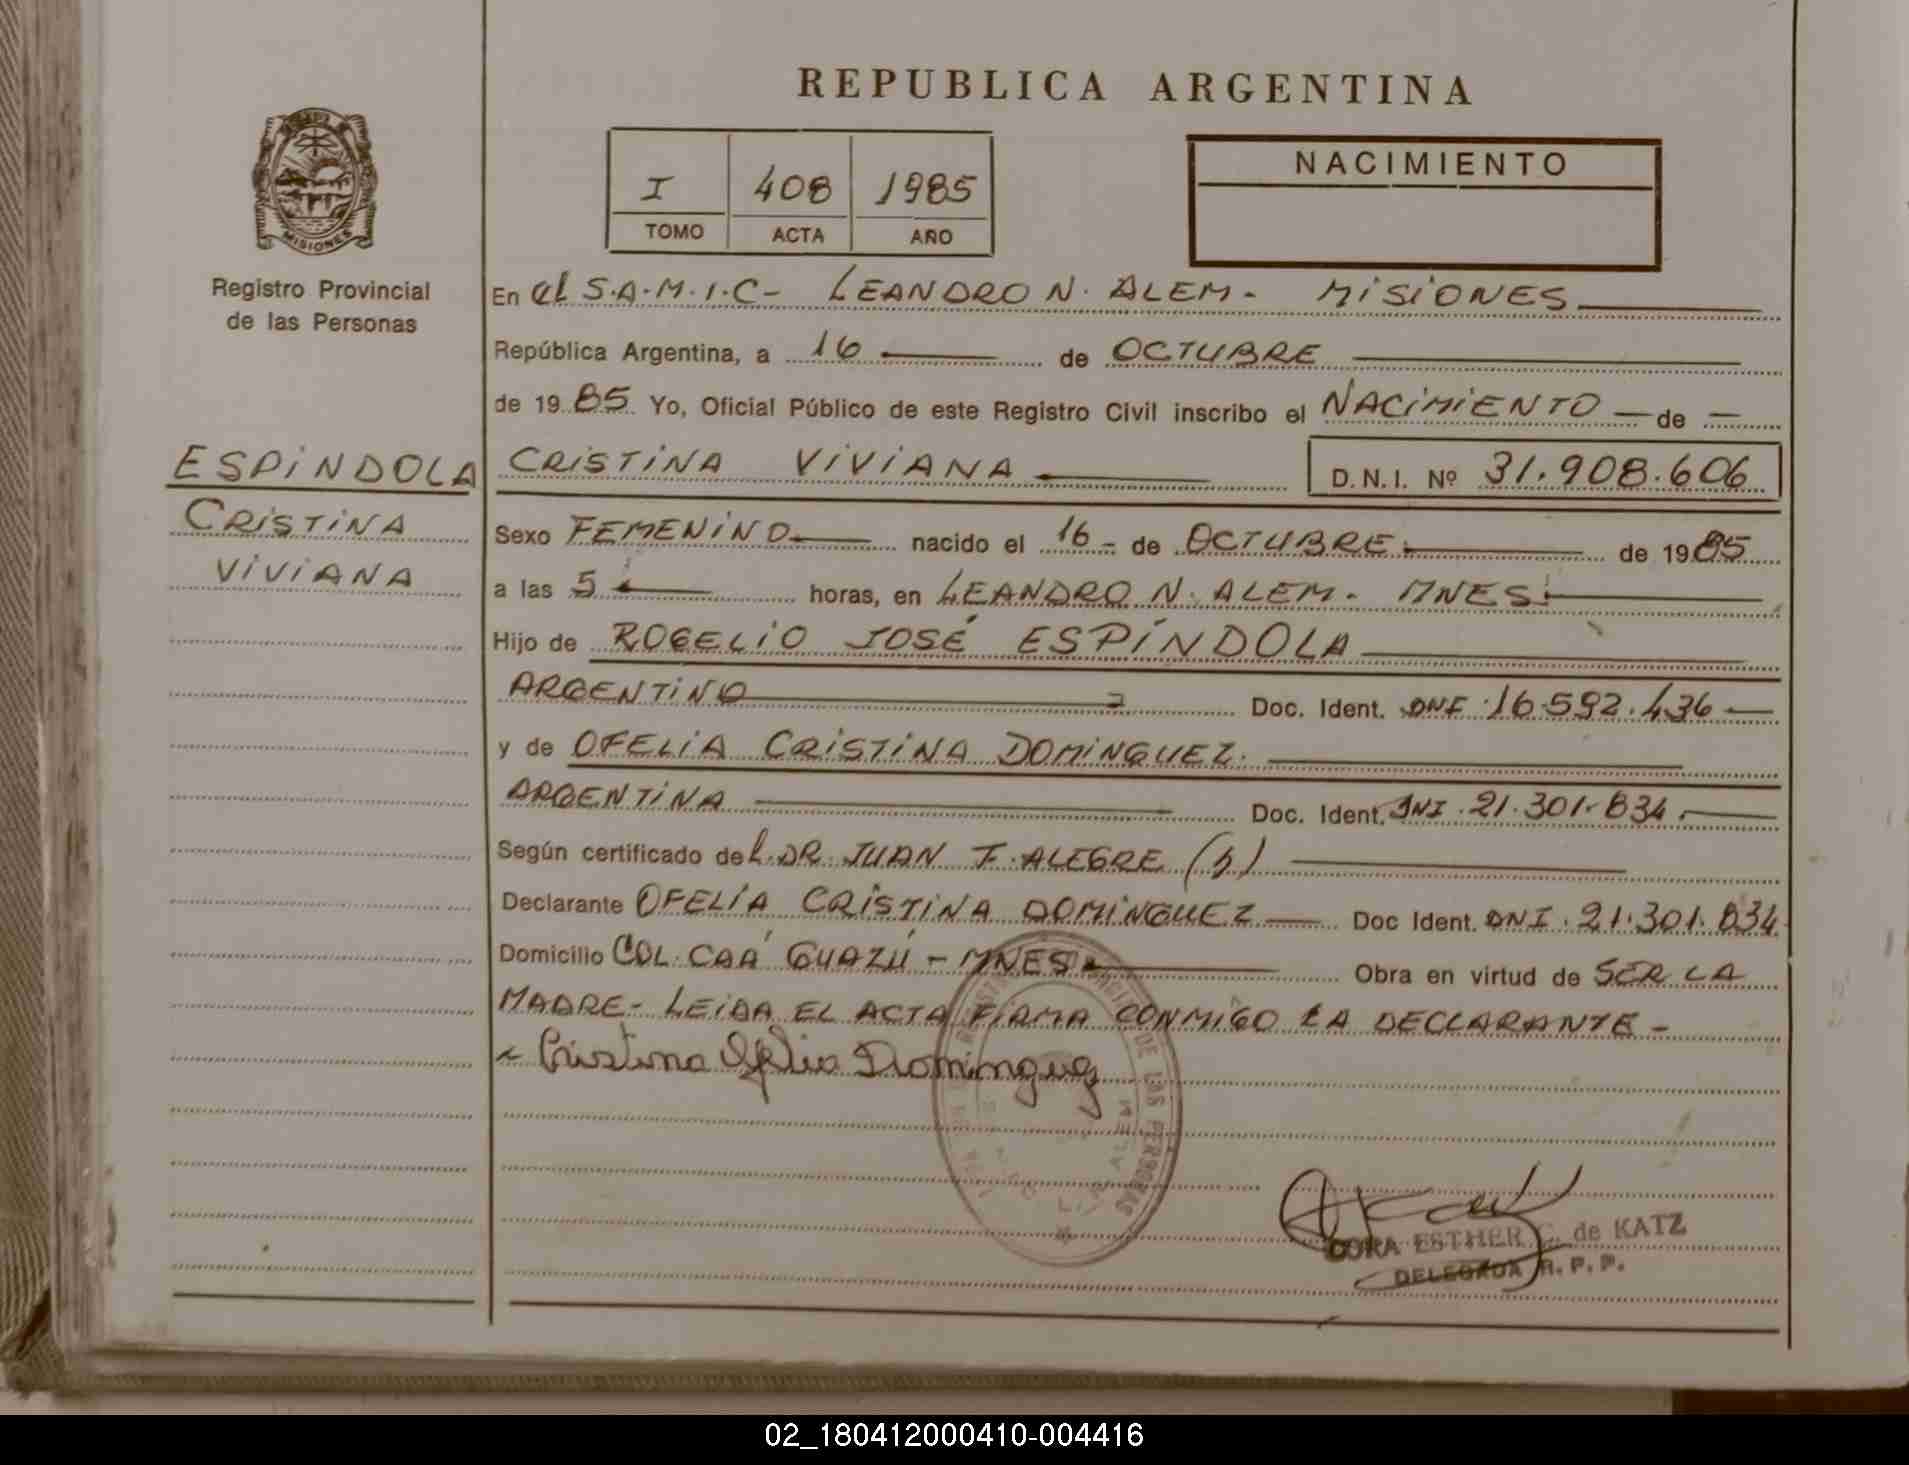 REPUBLICA ARGENTINA
MISIONES
Registro Provincial
de las Personas
I 408 1985
TOMO ACTA AÑO
NACIMIENTO
En el S.A.M.I.C- LEANDRO N. ALEM- MISIONES
República Argentina, a 16 de OCTUBRE
de 1985 Yo, Oficial Público de este Registro Civil inscribo el NACIMIENTO de
ESPINDOLA
CRISTINA
VIVIANA
CRISTINA VIVIANA D.N.I. Nº 31.908.606
Sexo FEMENINO nacido el 16- de OCTUBRE de 1985
a las 5 horas, en LEANDRO N. ALEM. MNES
Hijo de ROGELIO JOSÉ ESPÍNDOLA
ARGENTINO Doc. Ident. DNI 16.592.436
y de OFELIA CRISTINA DOMINGUEZ.
ARGENTINA Doc. Ident. DNI 21.301.834
Según certificado del DR JUAN F. ALEGRE
Declarante OFELIA CRISTINA DOMINGUEZ Doc Ident. DNI. 21.301.834
Domicilio COL. CAÁ GUAZÚ - MNES Obra en virtud de SER LA
MADRE- LEIDA EL ACTA FIRMA CONMIGO LA DECLARANTE-
Cristina Ofelia Dominguez
DE LAS PERSONAS
DORA ESTHER C. de KATZ
DELEGADA R.P.P.
02_180412000410-004416